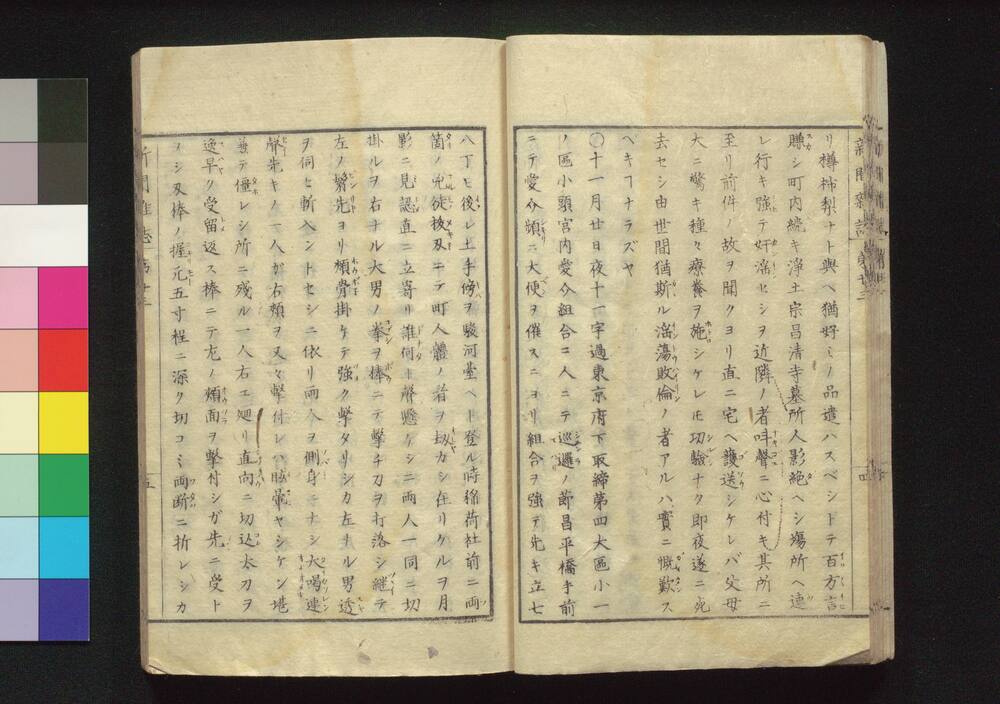 リ樽柿梨ナト與ヘ猶好ミノ品遣ハスベシトテ百方言
賺シ町内続キ浄土宗昌清寺墓所人影絶ヘシ場所ヘ連
レ行キ強テ奸淫セシヲ近隣ノ者呌聲ニ心付キ其所ニ
至リ前件ノ故ヲ聞クヨリ直ニ宅ヘ護送シケレバ父母
大ニ驚キ種々療養ヲ施シケレ𪜈功驗ナク即夜遂ニ死
去セシ由世間猶斯ル淫蕩敗倫ノ者アルハ實ニ慨歎ス
ヘキヿナラズヤ
〇十一月廿日夜十一字過東京府下取締第四大區小一
ノ區小頭宮内愛介組合二人ニテ巡邏ノ節昌平橋手前
ニテ愛介頻ニ大便ヲ催スニヨリ組合ヲ強テ先キ立七
八丁モ後レ土手傍ヲ駿河臺ヘト登ル時稲荷社前ニ両
箇ノ兇徒抜刄ニテ町人體ノ者ヲ劫カシ在リケルヲ月
影ニ見認直ニ立寄リ誰何ト聲懸ケシニ両人一同ニ切
掛ルヲ右ナル大男ノ拳ヲ棒ニテ撃チ刀ヲ打落シ継テ
左ノ鬢先ヨリ頬骨掛ケテ強ク撃タリシカ左ナル男透
ヲ伺ヒ斬入ントセシニ依リ両介ヲ側身ニナシ大喝連
聲先キノ一人ガ右頬ヲ又々撃付レハ眩暈ヤシケン堪
兼テ僵レシ所ニ残ル一人右エ廻リ直向ニ切込太刀ヲ
逸早ク受留返ス棒ニテ左ノ頬面ヲ撃付シガ先ニ受ト
メシ刄棒ノ握元五寸程ニ深ク切コミ両断ニ折レシカ
新聞雜誌
第廿三
四
五